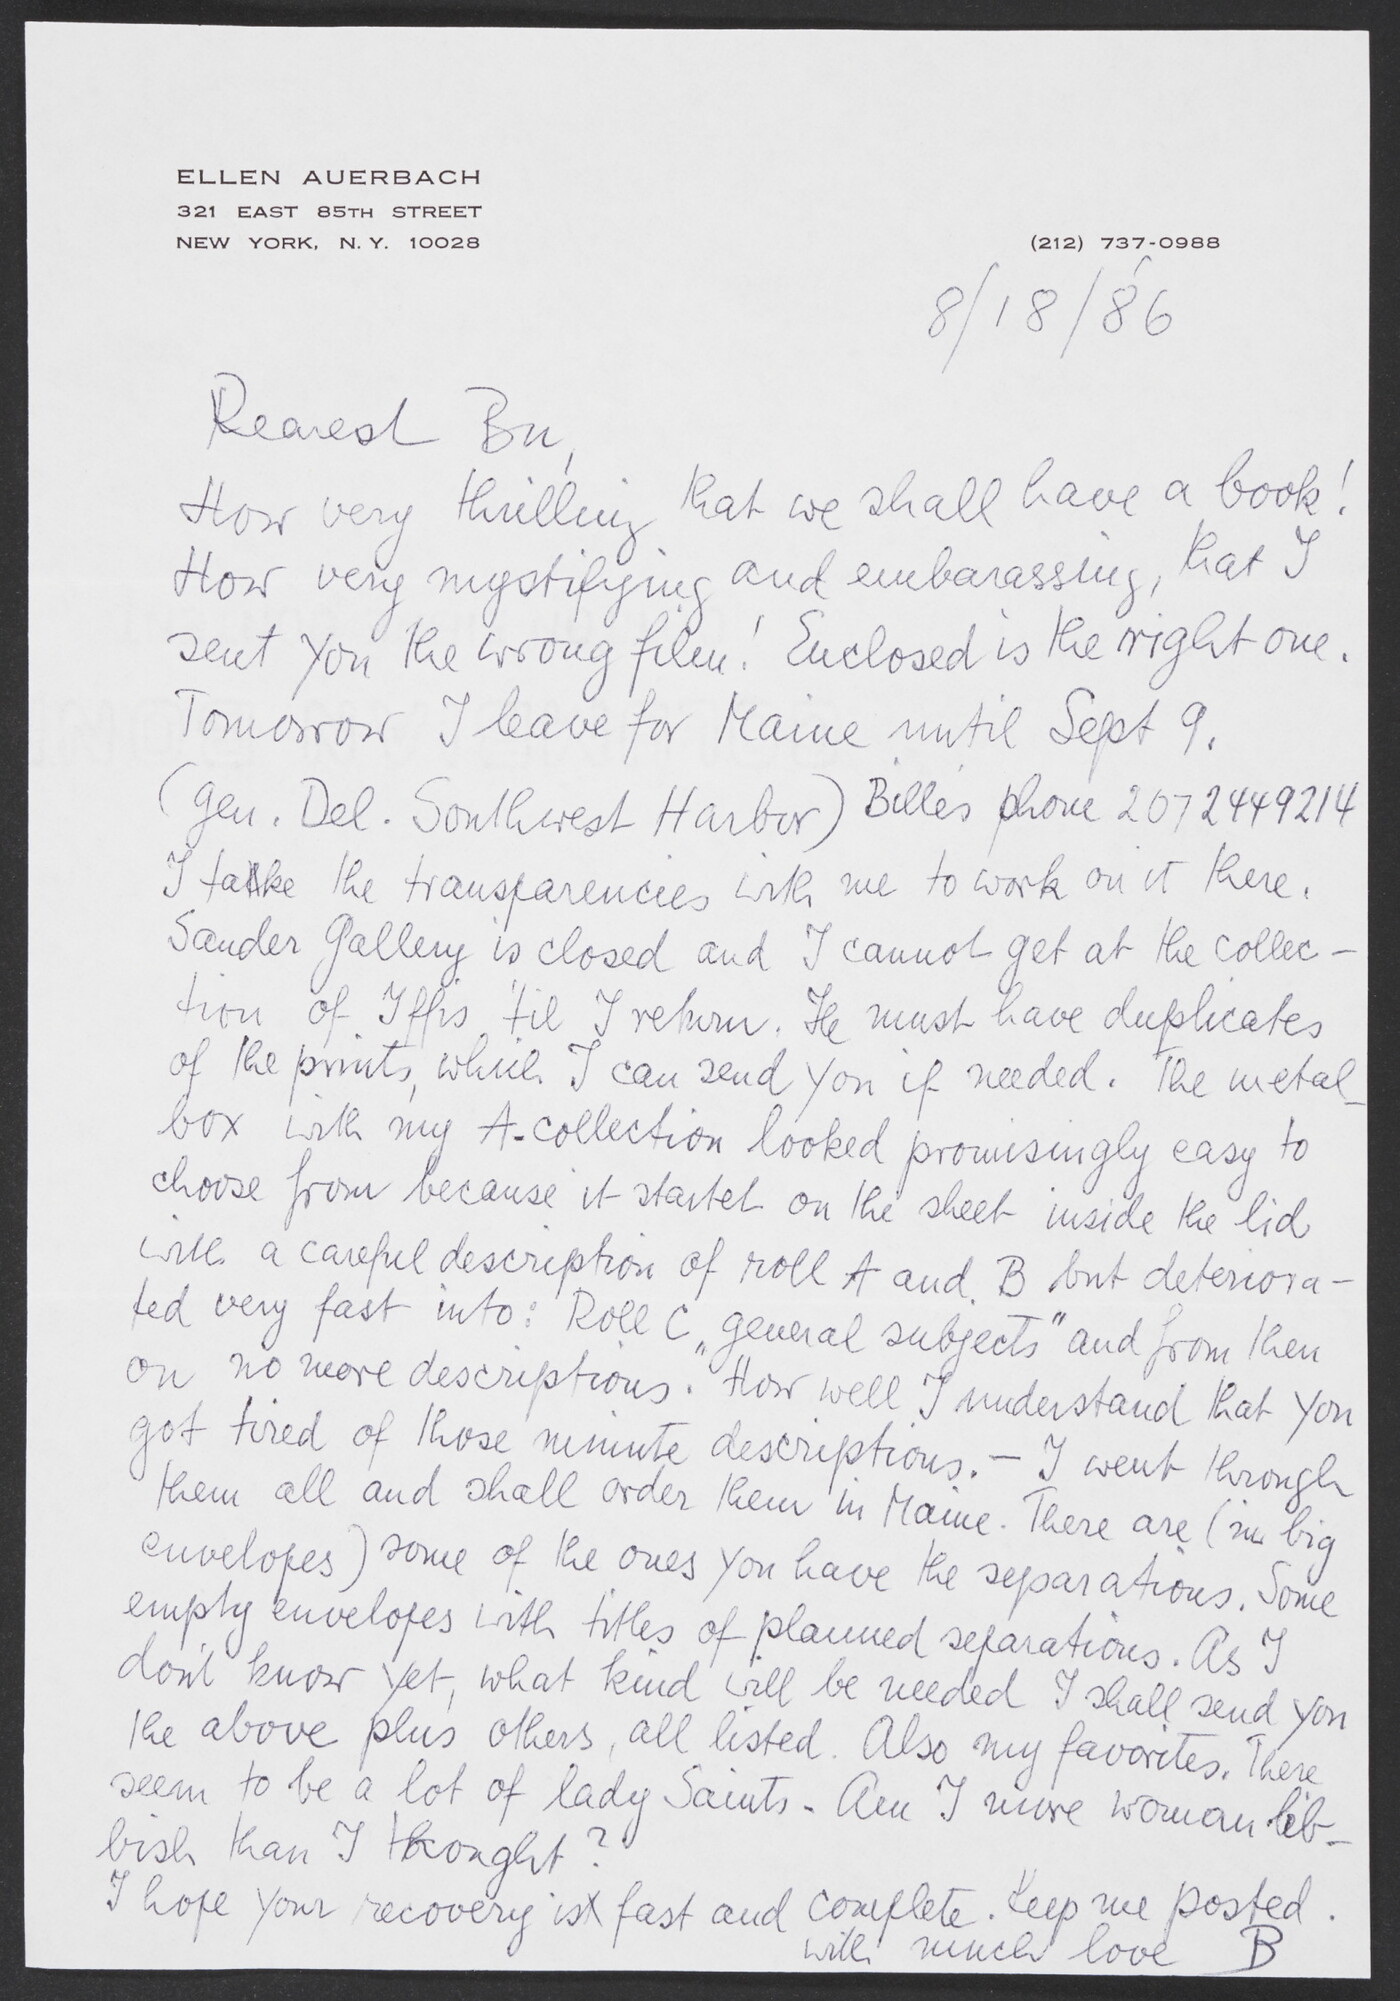 ELLEN AUERBACH
321 EAST 85TH STREET
NEW YORK, N.Y. 10028
(212) 737-0988
8/18/'86
Dearest Bu,
How very thrilling that we shall have a book!
How very mystifying and embarassing, that I
sent you the wrong film! Enclosed is the right one.
Tomorrow I leave for Maine until Sept 9.
(gen. Del. Southwest Harbor) Bille's phone 207 2449214
I take the transparencies with me to work on it there.
Sander Gallery is closed and I cannot get at the collec-
tion of Iffis 'til I return. He must have duplicates
of the prints, which I can send you if needed. The metal-
box with my A-collection looked promisingly easy to
choose from because it startet on the sheet inside the lid
with a careful description of roll A and B but deteriora-
ted very fast into: Roll C „general subjects" and from then
on no more descriptions. How well I understand that you
got tired of those minute descriptions. - I went through
them all and shall order them in Maine. There are (in big
envelopes) some of the ones you have the separations. Some
empty envelopes with titles of planned separations. As I
don't know yet, what kind will be needed I shall send you
the above plus others, all listed. Also my favorites. There
seem to be a lot of lady Saints - Am I more woman lib-
bish than I thought?
I hope your recovery is fast and complete. Keep me posted.
with much love B